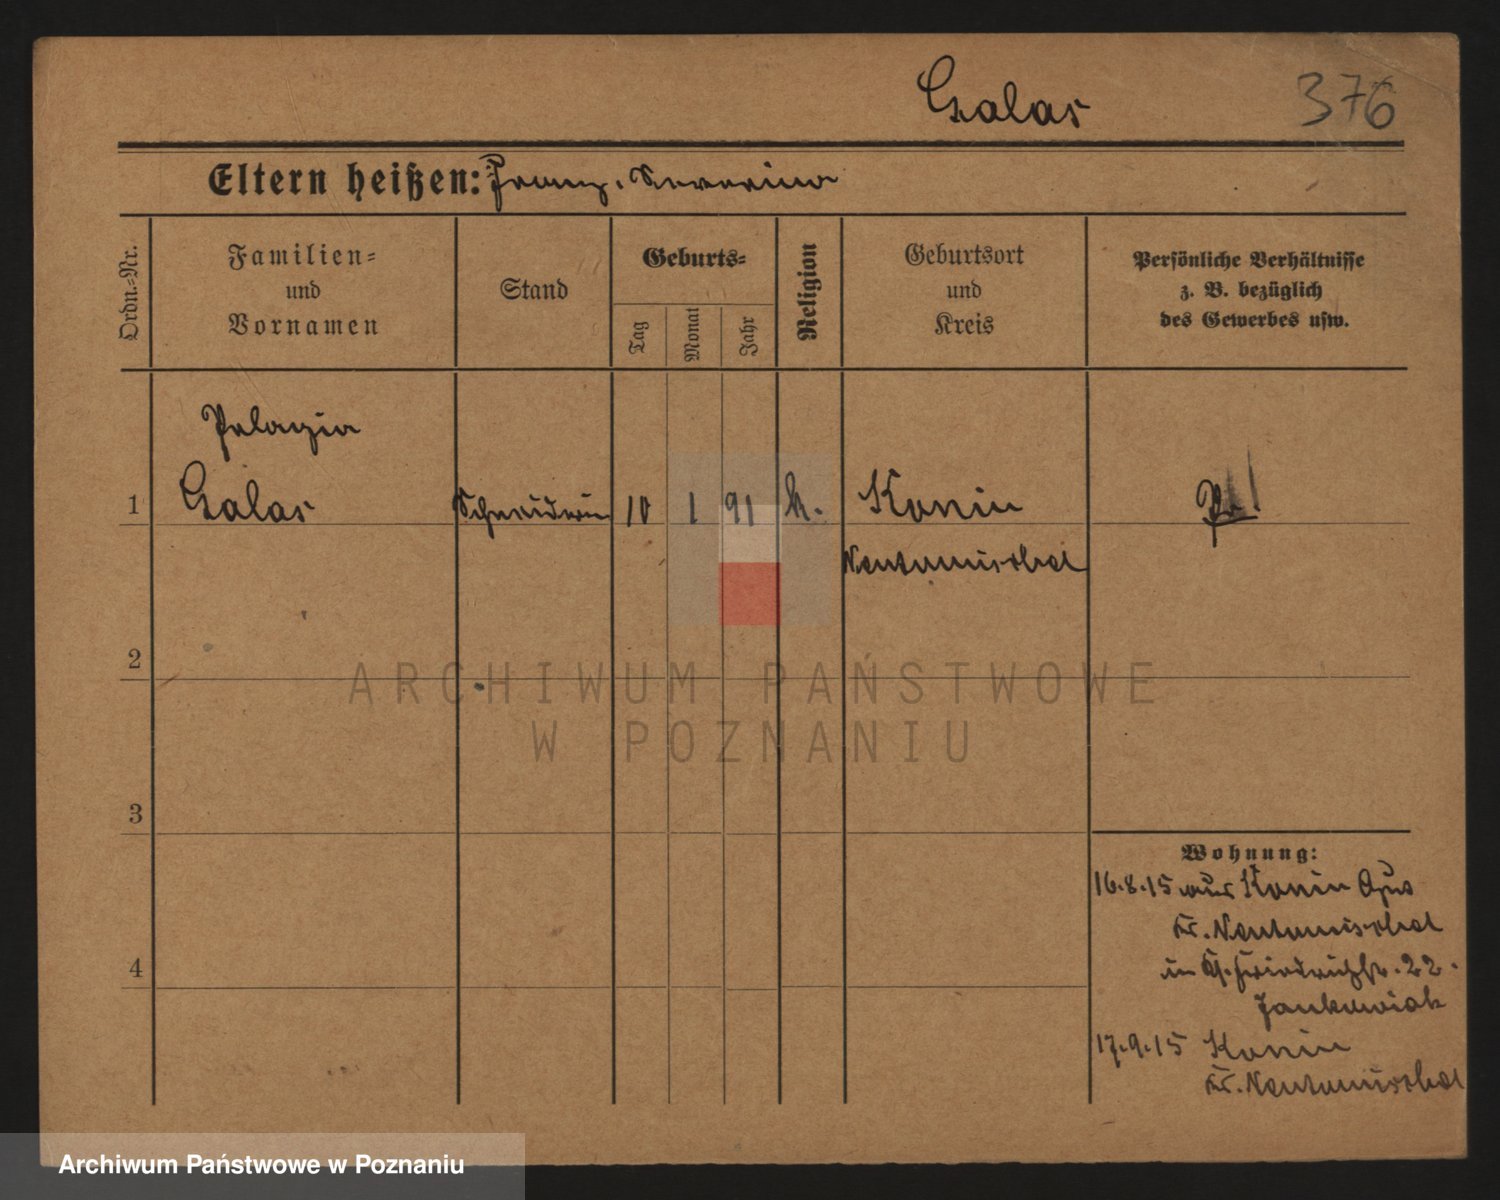 Galas 376
Eltern heißen: Franz. Severina
Ordn.-Nr.
Familien-
und
Vornamen
Stand
Geburts-
Tag
Monat
Jahr
Religion
Geburtsort
und
Kreis
Persönliche Verhältnisse
z. B. bezüglich
des Gewerbes usw.
Pelagia
1 Galas Schneiderin 10 1 91 k. Konin Pr
Neutomischel
2
ARCHIWUM PAŃSTWOWE
W POZNANIU
3
Wohnung:
16.8.15 aus Konin
Kr. Neutomischel
in Friedrichstr. 22.
Jankowiak
4
17.9.15 Konin
Kr. Neutomischel
Archiwum Państwowe w Poznaniu